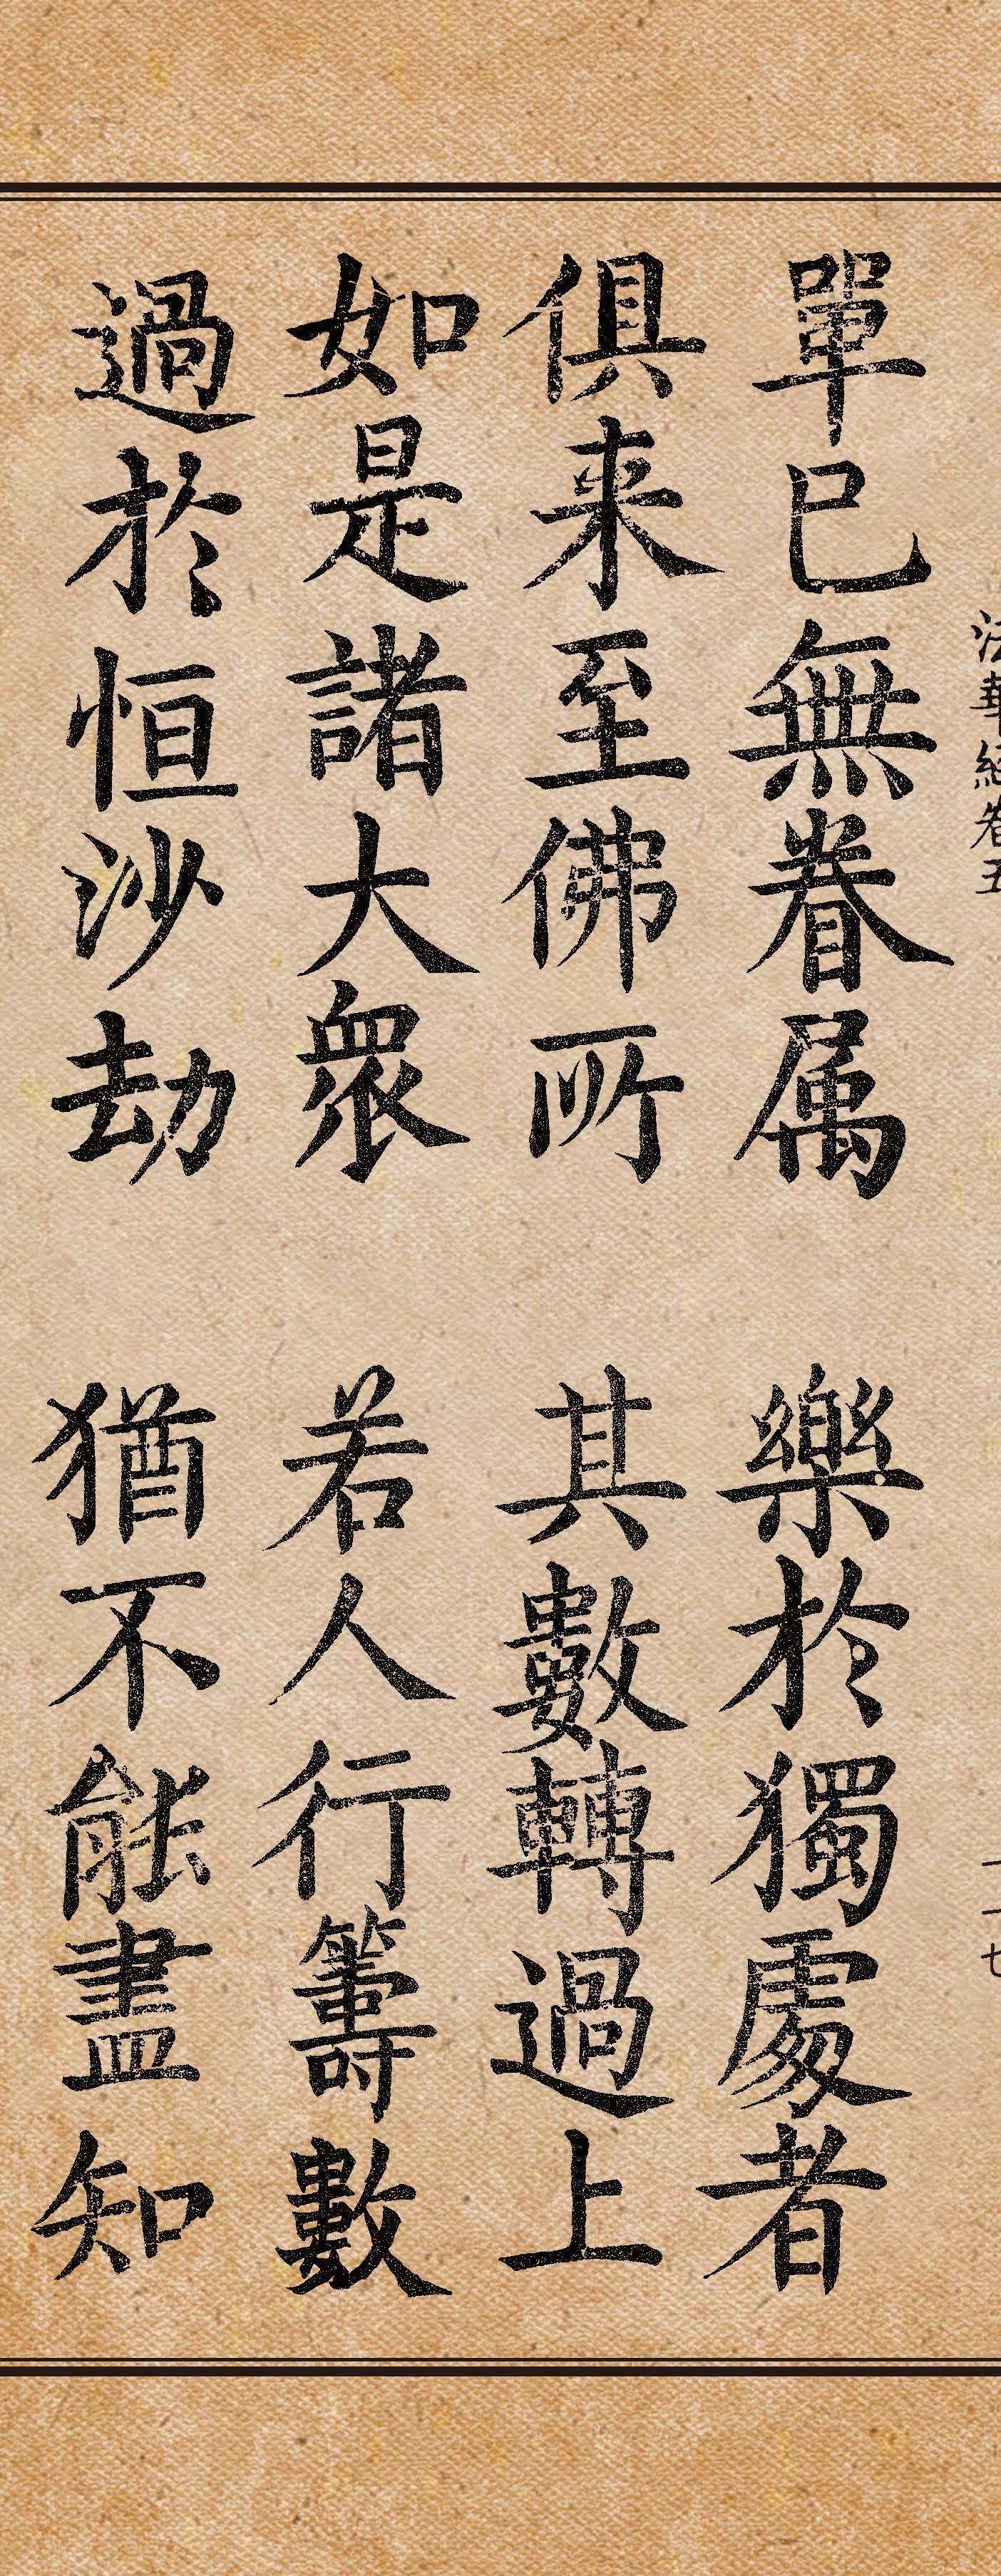 法華經卷五 一一七
單已無眷属 樂於獨處者
俱来至佛所 其數轉過上
如是諸大衆 若人行籌數
過於恒沙劫 猶不能盡知